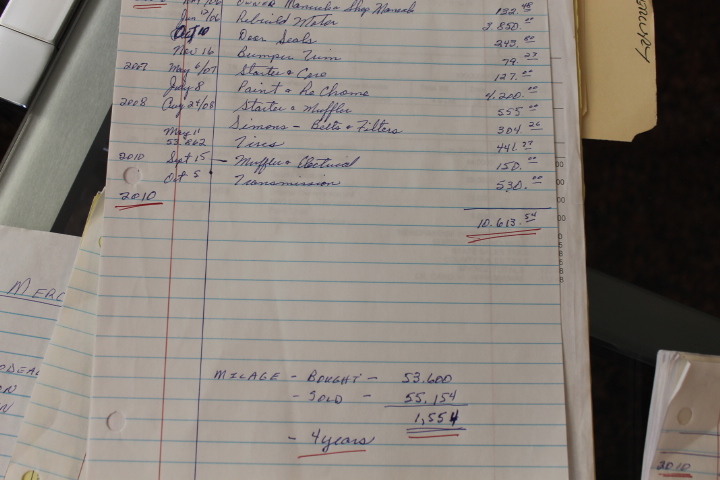 Owner Manual & Shop Manual 132.48
Jan 12/06 Rebuild Motor 2.850.00
Oct 10 Door Seals 243.80
Nov 16 Bumper Trim 79.27
2007 May 6/07 Starter & 127.00
July 8 Paint & Re Chome 4.200.00
2008 Aug 24/08 Starter & Muffler 555.00
Simons - Belts & Filters 304.26
May 11
53.862 Tires 441.77
2010 Sept 15 - Muffler & Electrical 150.00
Oct 5 Transmission 530.00
2010
10.613.54
MILAGE - BOUGHT - 53.600
- SOLD - 55.154
1,554
- 4 years
MERC
2010